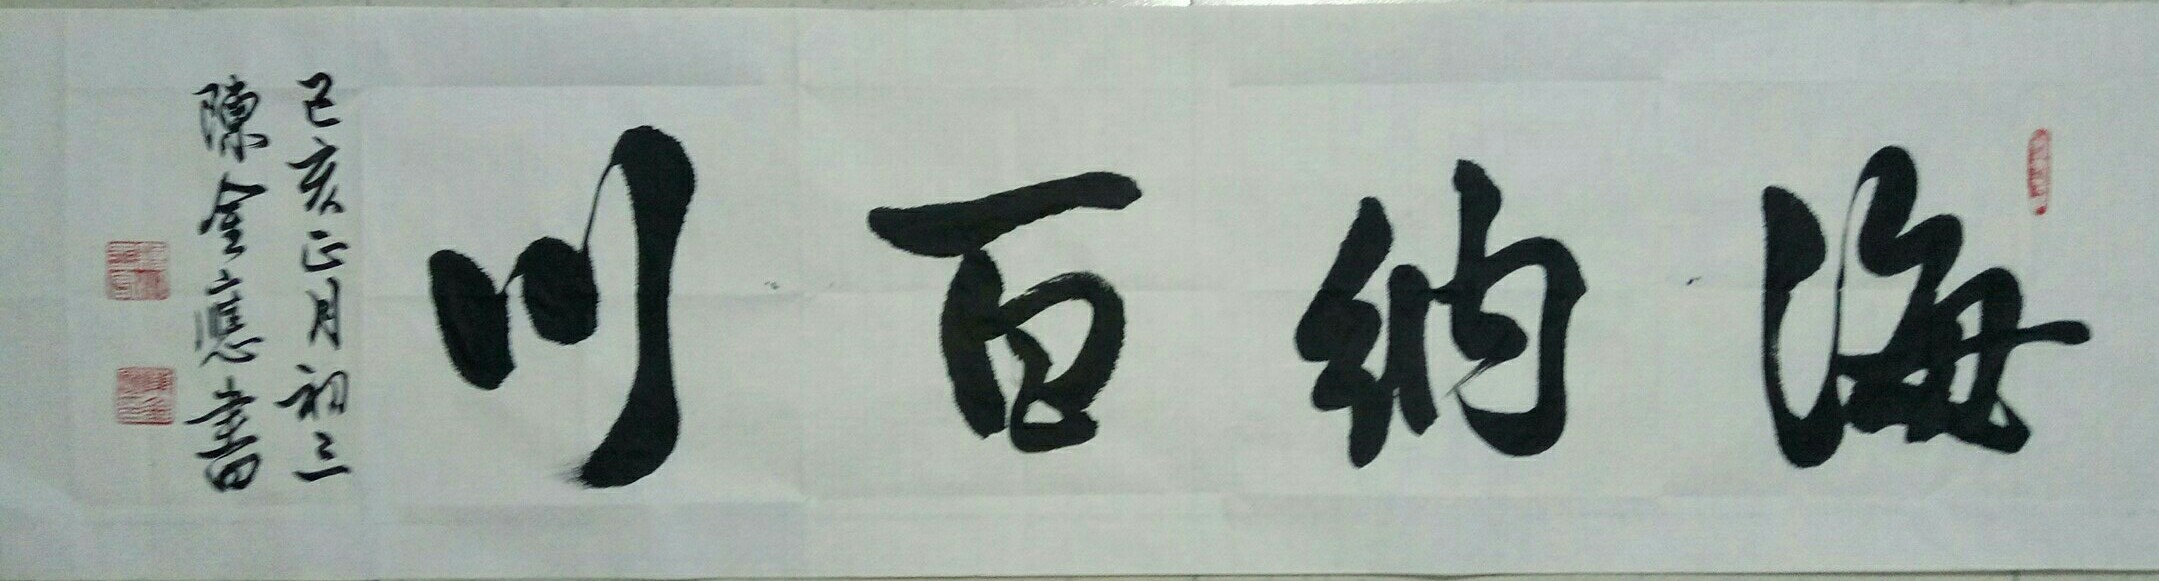 海納百川
己亥正月初三
陳金應書